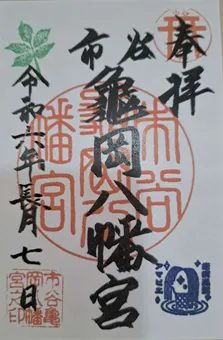 奉拝
市谷
龜岡八幡宮
令和六年長月七日
市谷
幡宮